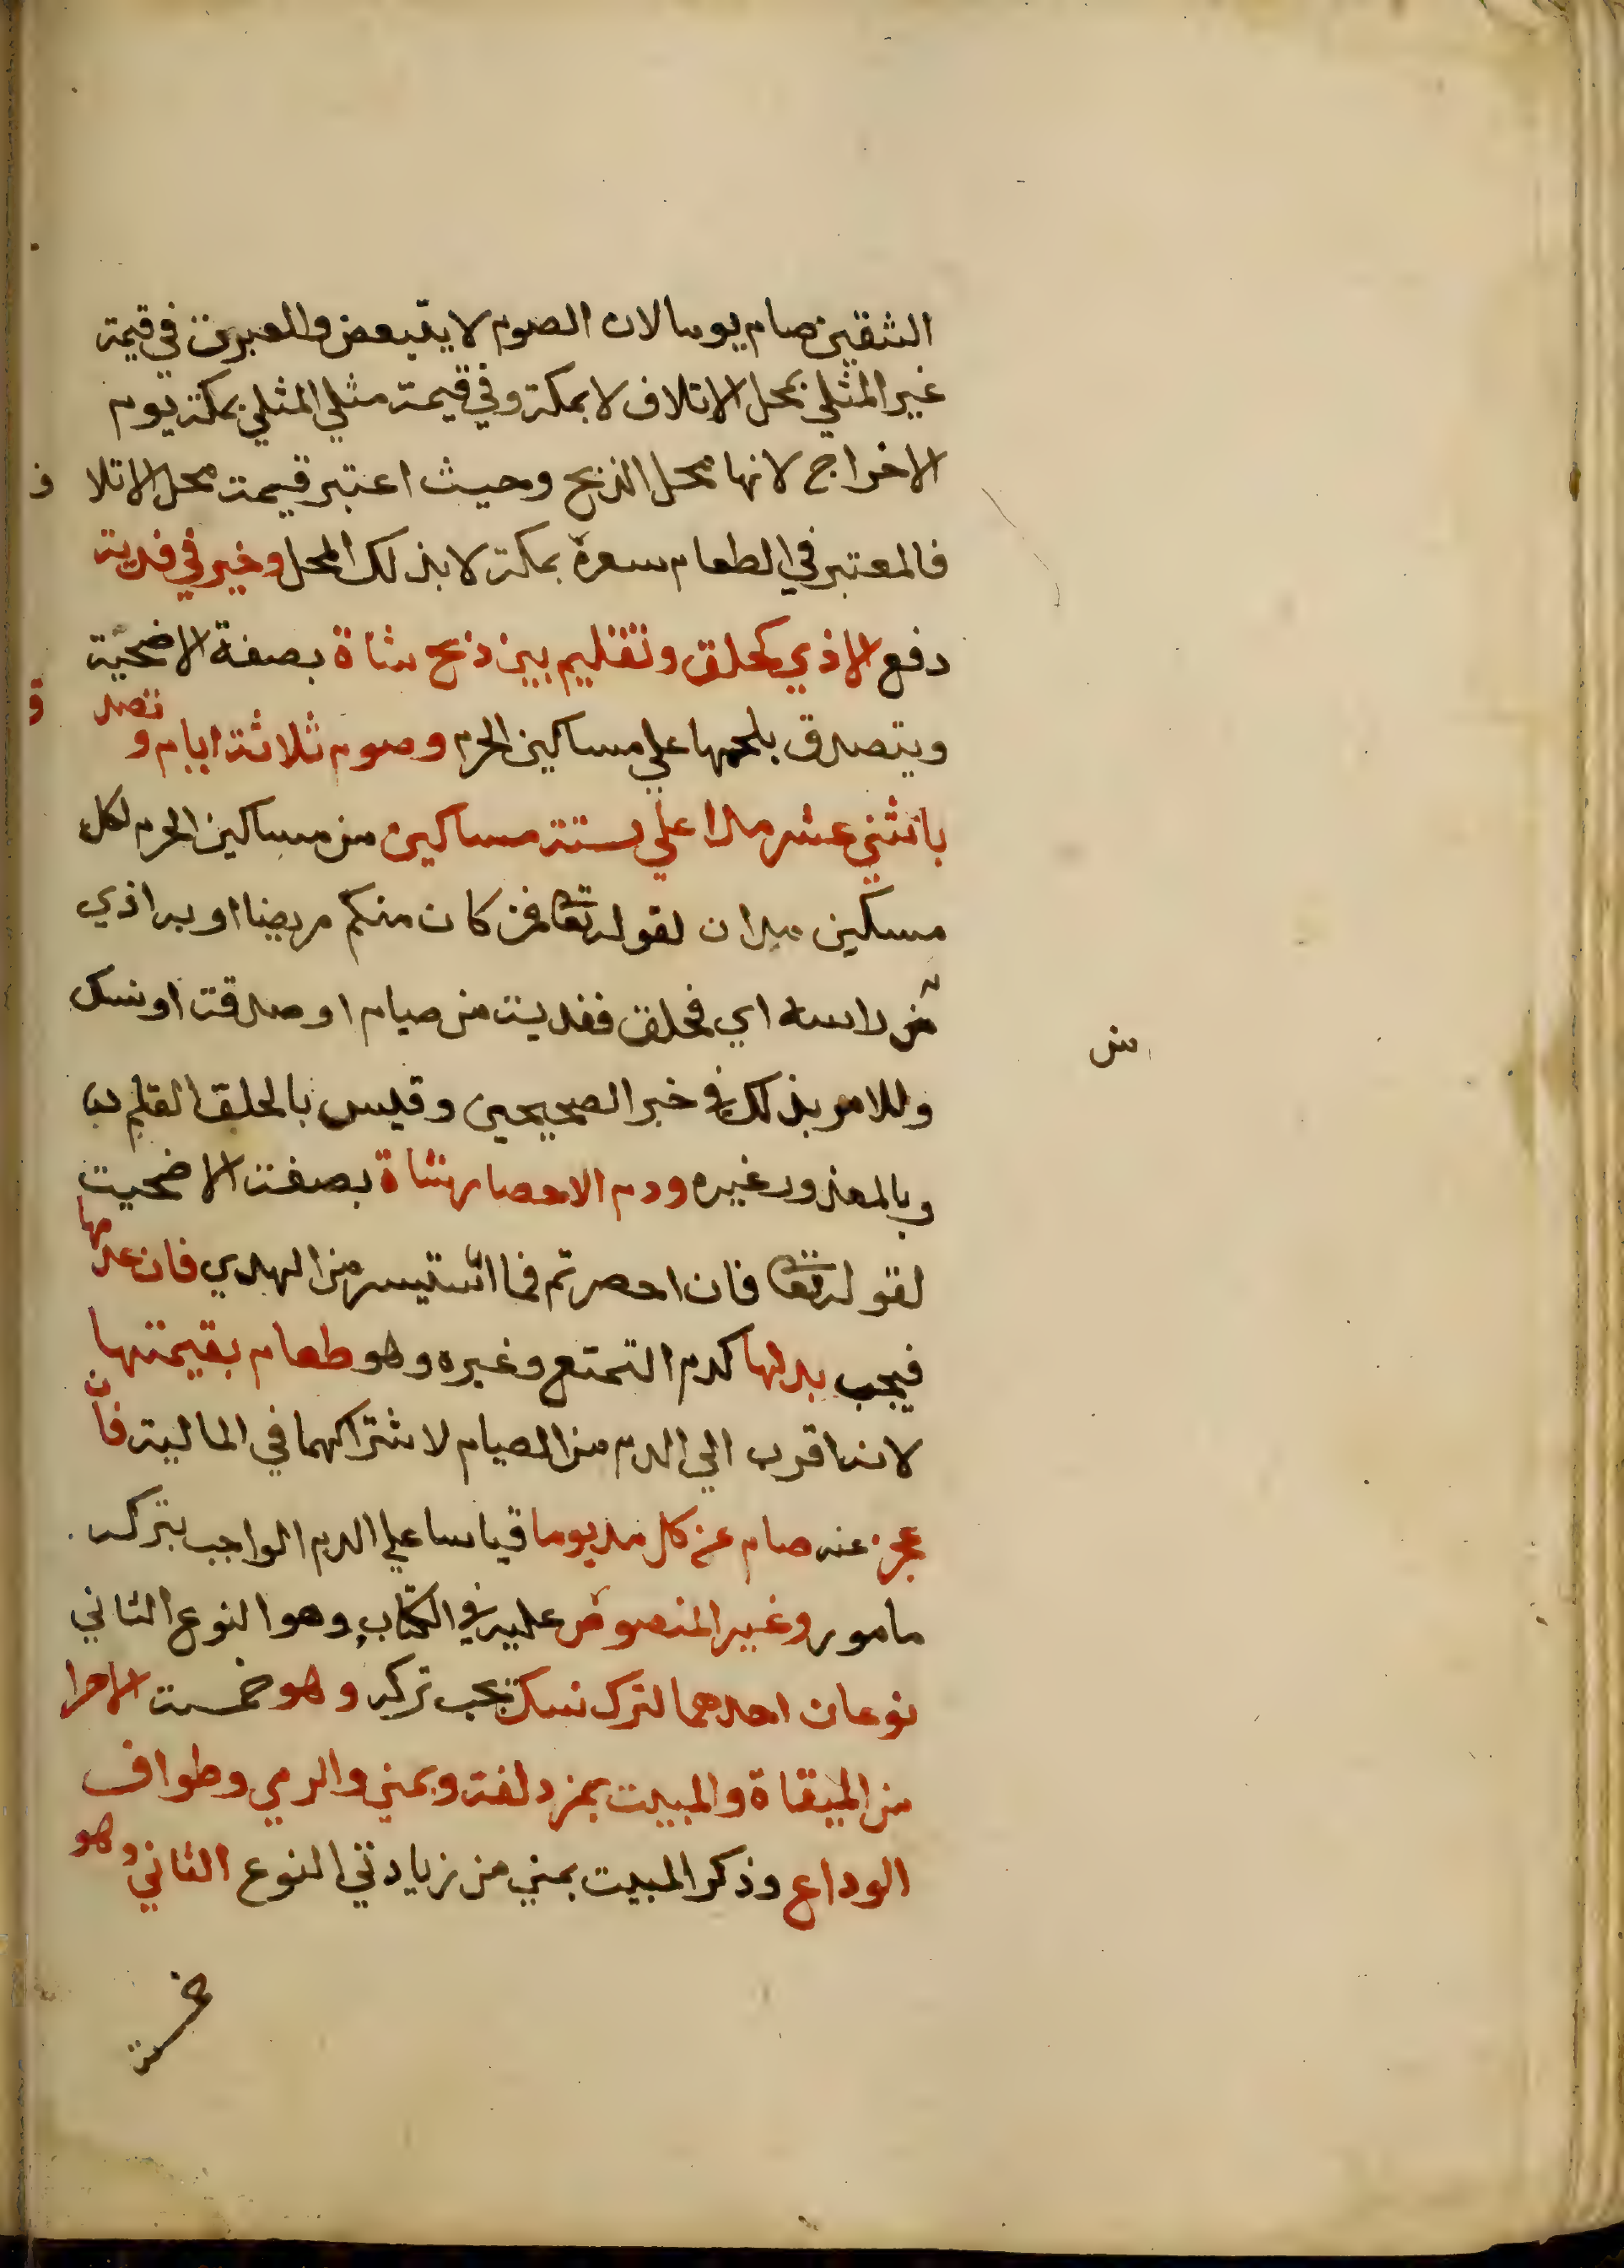 الشقين صام يوما لان الصوم لا يتبعض والعبرة في قيمة
غير المثلي بمحل الاتلاف لا بمكة وفي قيمة مثلي المثلي بمكة يوم
الاخراج لانها محل الذبح وحيث اعتبر قيمة محل الاتلا ف
فالمعتبر في الطعام سعره بمكة لا بذلك المحل وخير في فدية
دفع الاذي كحلق وتقليم بين ذبح شاة بصفة الاضحية
ويتصدق بلحمها علي مساكين الحرم وصوم ثلاثة ايام و تصد ق
باثني عشر مدا علي ستة مساكين من مساكين الحرم لكل
مسكين مدان لقوله تعا فمن كان منكم مريضا او به اذي
من راسه اي فحلق ففدية من صيام او صدقة او نسك
من
وللامر بذلك في خبر الصحيحين وقيس بالحلق القلم
وبالمعذور غيره ودم الاحصار شاة بصفة الاضحية
لقوله تعا فان احصرتم فما استيسر من الهدي فان عدمها
فيجب بدلها كدم التمتع وغيره وهو طعام بقيمتها
لانه اقرب الي الدم من الصيام لاشتراكهما في المالية فان
عجز عنه صام عن كل مد يوما قياسا علي الدم الواجب بترك
مامور وغير المنصوص عليه في الكتاب وهو النوع الثاني
نوعان احدهما لترك نسك يجب تركه وهو خمسة الاحرا
من الميقاة والمبيت بمزدلفة وبمني والرمي وطواف
الوداع وذكر المبيت بمني من زيادتي النوع الثاني وهو